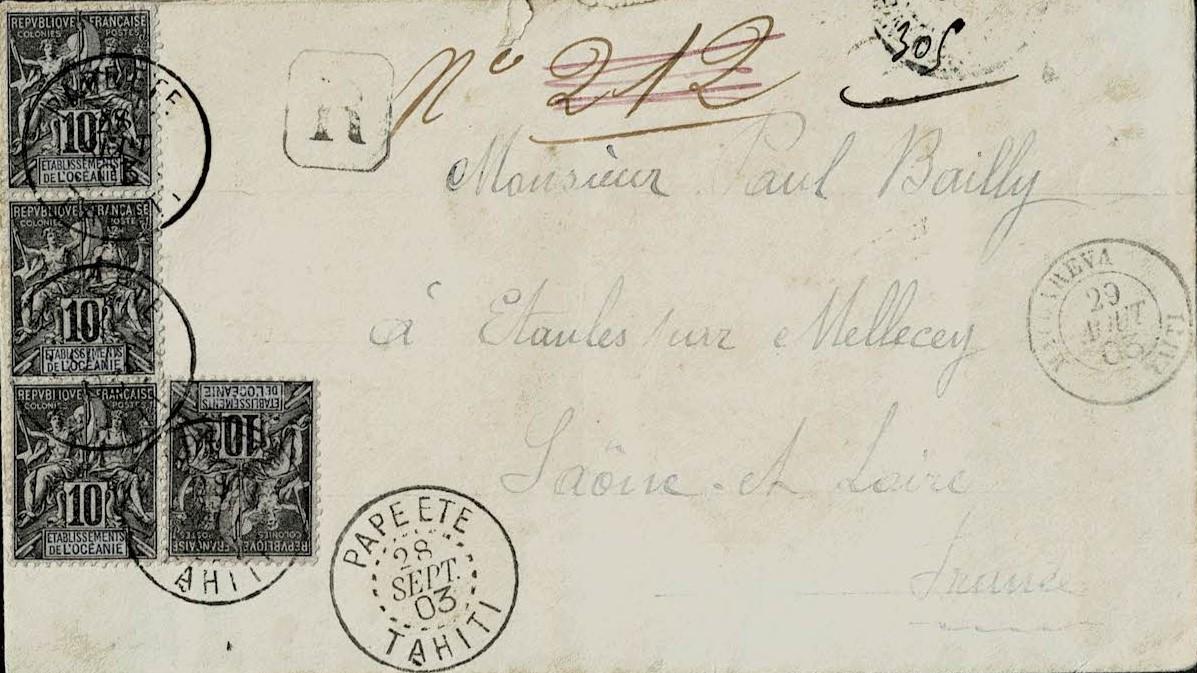 REPVBLIQVE FRANÇAISE
COLONIES POSTES
10
ETABLISSEMENTS
DE L'OCÉANIE
REPVBLIQVE FRANÇAISE
COLONIES POSTES
10
ETABLISSEMENTS
DE L'OCÉANIE
REPVBLIQVE FRANÇAISE
COLONIES POSTES
10
ETABLISSEMENTS
DE L'OCÉANIE
REPVBLIQVE FRANÇAISE
COLONIES POSTES
10
ETABLISSEMENTS
DE L'OCÉANIE
R
No 212
305
Monsieur Paul Bailly
à Etaules sur Mellecey
Saône et Loire
France
29
AOUT
03
PAPEETE
28
SEPT.
03
TAHITI
TAHITI